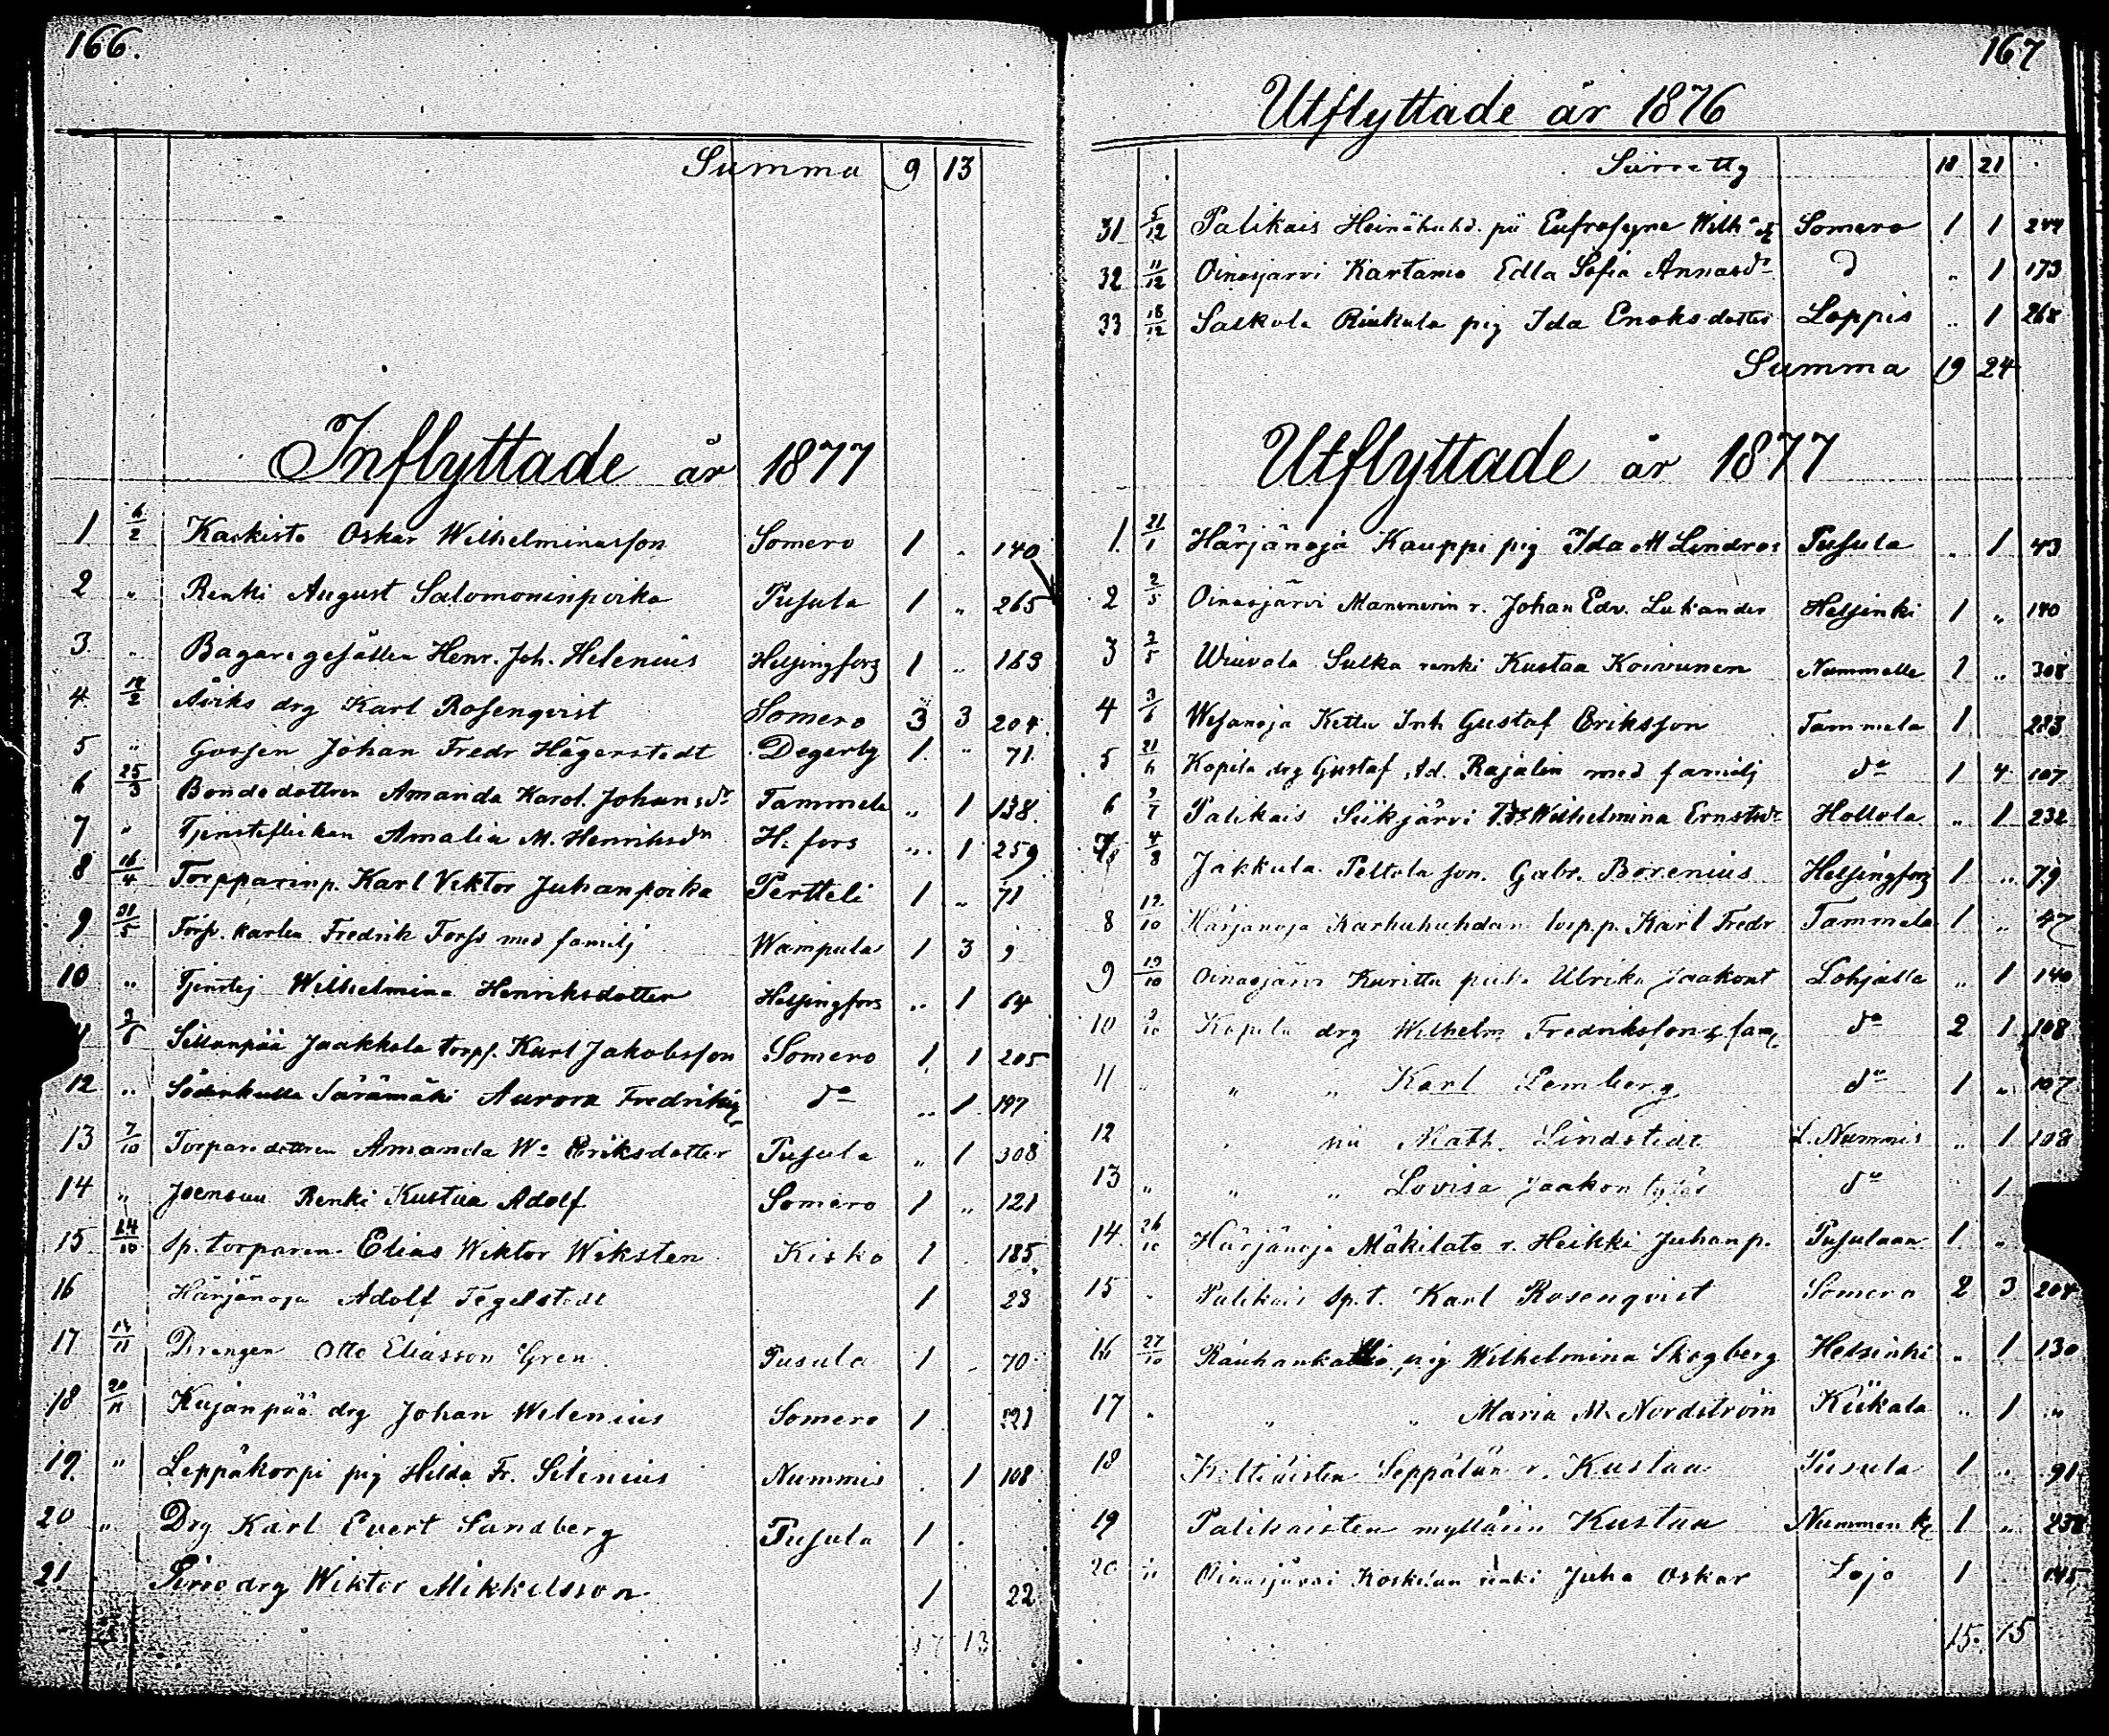 166.
Summa 9 13
Inflyttade år 1877
1 6/2 Kaskisto Oskar Wilhelminasson Somero 1 . 140
2 " Renki August Salomoninpoika Pusula 1 " 265
3. " Bagaregesällen Henr. Joh. Helenius Helsingfors 1 " 163
4 18/2 Åviks drg Karl Rosenqvist Somero 3 3 204
5 " Gossen Johan Fredr Hägerstedt Degerby 1 " 71
6 25/3 Bondedottren Amanda Karol. Johansdr Tammela " 1 138
7 " Tjensteflickan Amalia M. Henriksdn H:fors " 1 259
8 16/4 Torpparinp. Karl Viktor Juhanpoika Pertteli 1 " 71
9 31/5 Torp. karlen Fredrik Torss med familj Wampula 1 3 9
10 " Tjenstej Wilhelmina Henriksdotter Helsingfors " 1 64
3/6 Sillanpää Jaakkola torps. Karl Jakobsson Somero 1 1 205
12 " Söderkulla Särämäki Aurora Fredriks do " 1 197
13 7/10 Torparedottren Amanda Wa Eriksdotter Pusula " 1 308
14 " Joensuu Renki Kustaa Adolf Somero 1 " 121
15 14/10 Sp. torparen Elias Wiktor Wiksten Kisko 1 . 185
16 Härjänoja Adolf Tegelstedt 1 23
17 14/11 Drengen Otto Eliasson Gren Pusula 1 . 70
18 20/11 Kujanpää drg Johan Welenius Somero 1 121
19. " Leppäkorpi pig Hilda Fr. Silenius Nummis . 1 108
20 " Drg Karl Evert Sandberg Pusula 1 .
21 Piirro drg Wiktor Mikkelsson 1 22
17 13
167
Utflyttade år 1876
Siirretty 18 21
31 5/12 Palikais Heinähuhd. pii Eufrosyne Wilh Somero 1 1 244
32 11/12 Oinasjarvi Kartamo Edla Sofia Annasdr d " 1 173
33 18/12 Salkola Riukula pig Ida Enoksdotter Loppis " 1 268
Summa 19 24
Utflyttade år 1877
1. 21/1 Härjänoja Kauppi pig Ida M Lindros Pusula " 1 43
2 2/5 Oinasjärvi Mannerin r. Johan Edv. Lukander Helsinki 1 " 140
3 2/5 Wiuvala Sulka renki Kustaa Koivunen Nummelle 1 " 308
4 3/6 Wesanoja Kettu Inh Gustaf Eriksson Tammela 1 223
5 21/6 Kopila drg Gustaf Ad. Rajalin med familj do 1 4 107
6 2/7 Palikais Siikjärvi Wilhelmina Ernstdr Hollola " 1 232
7 4/8 Jakkula Peltola son. Gabr. Borenius Helsingfors 1 " 79
8 12/10 Härjanoja Karhuhuhdan torp.p. Karl Fredr Tammela 1 " 47
9 19/10 Oinasjärvi Kuritta piika Ulrika Jaakont Lohjalle " 1 140
10 Kopila drg Wilhelm Fredriksson & fam do 2 1 108
11 " " Karl Lemberg do 1 " 107
12 " pii Math. Lindstedt L. Nummis " 1 108
13 " " " Lovisa Jaakon tytär do 1
14 26/10 Härjänoja Mäkilato r. Heikki Juhanp. Pusulaan 1 "
15 " Palikais Sp. t. Karl Rosenqvist Somero 2 3 204
16 27/10 Rauhankallio pig Wilhelmina Skogberg Helsinki " 1 130
17 " " " Maria M. Nordström Kiikala " 1 "
18 Keltiäisten Seppälän r. Kustaa Pusula 1 " 91
19 Palikaisten myllärin Kustaa Nummen k 1 " 238
20 Oinasjärvi Koskelan renki Juha Oskar Lojo 1 145
15. 15